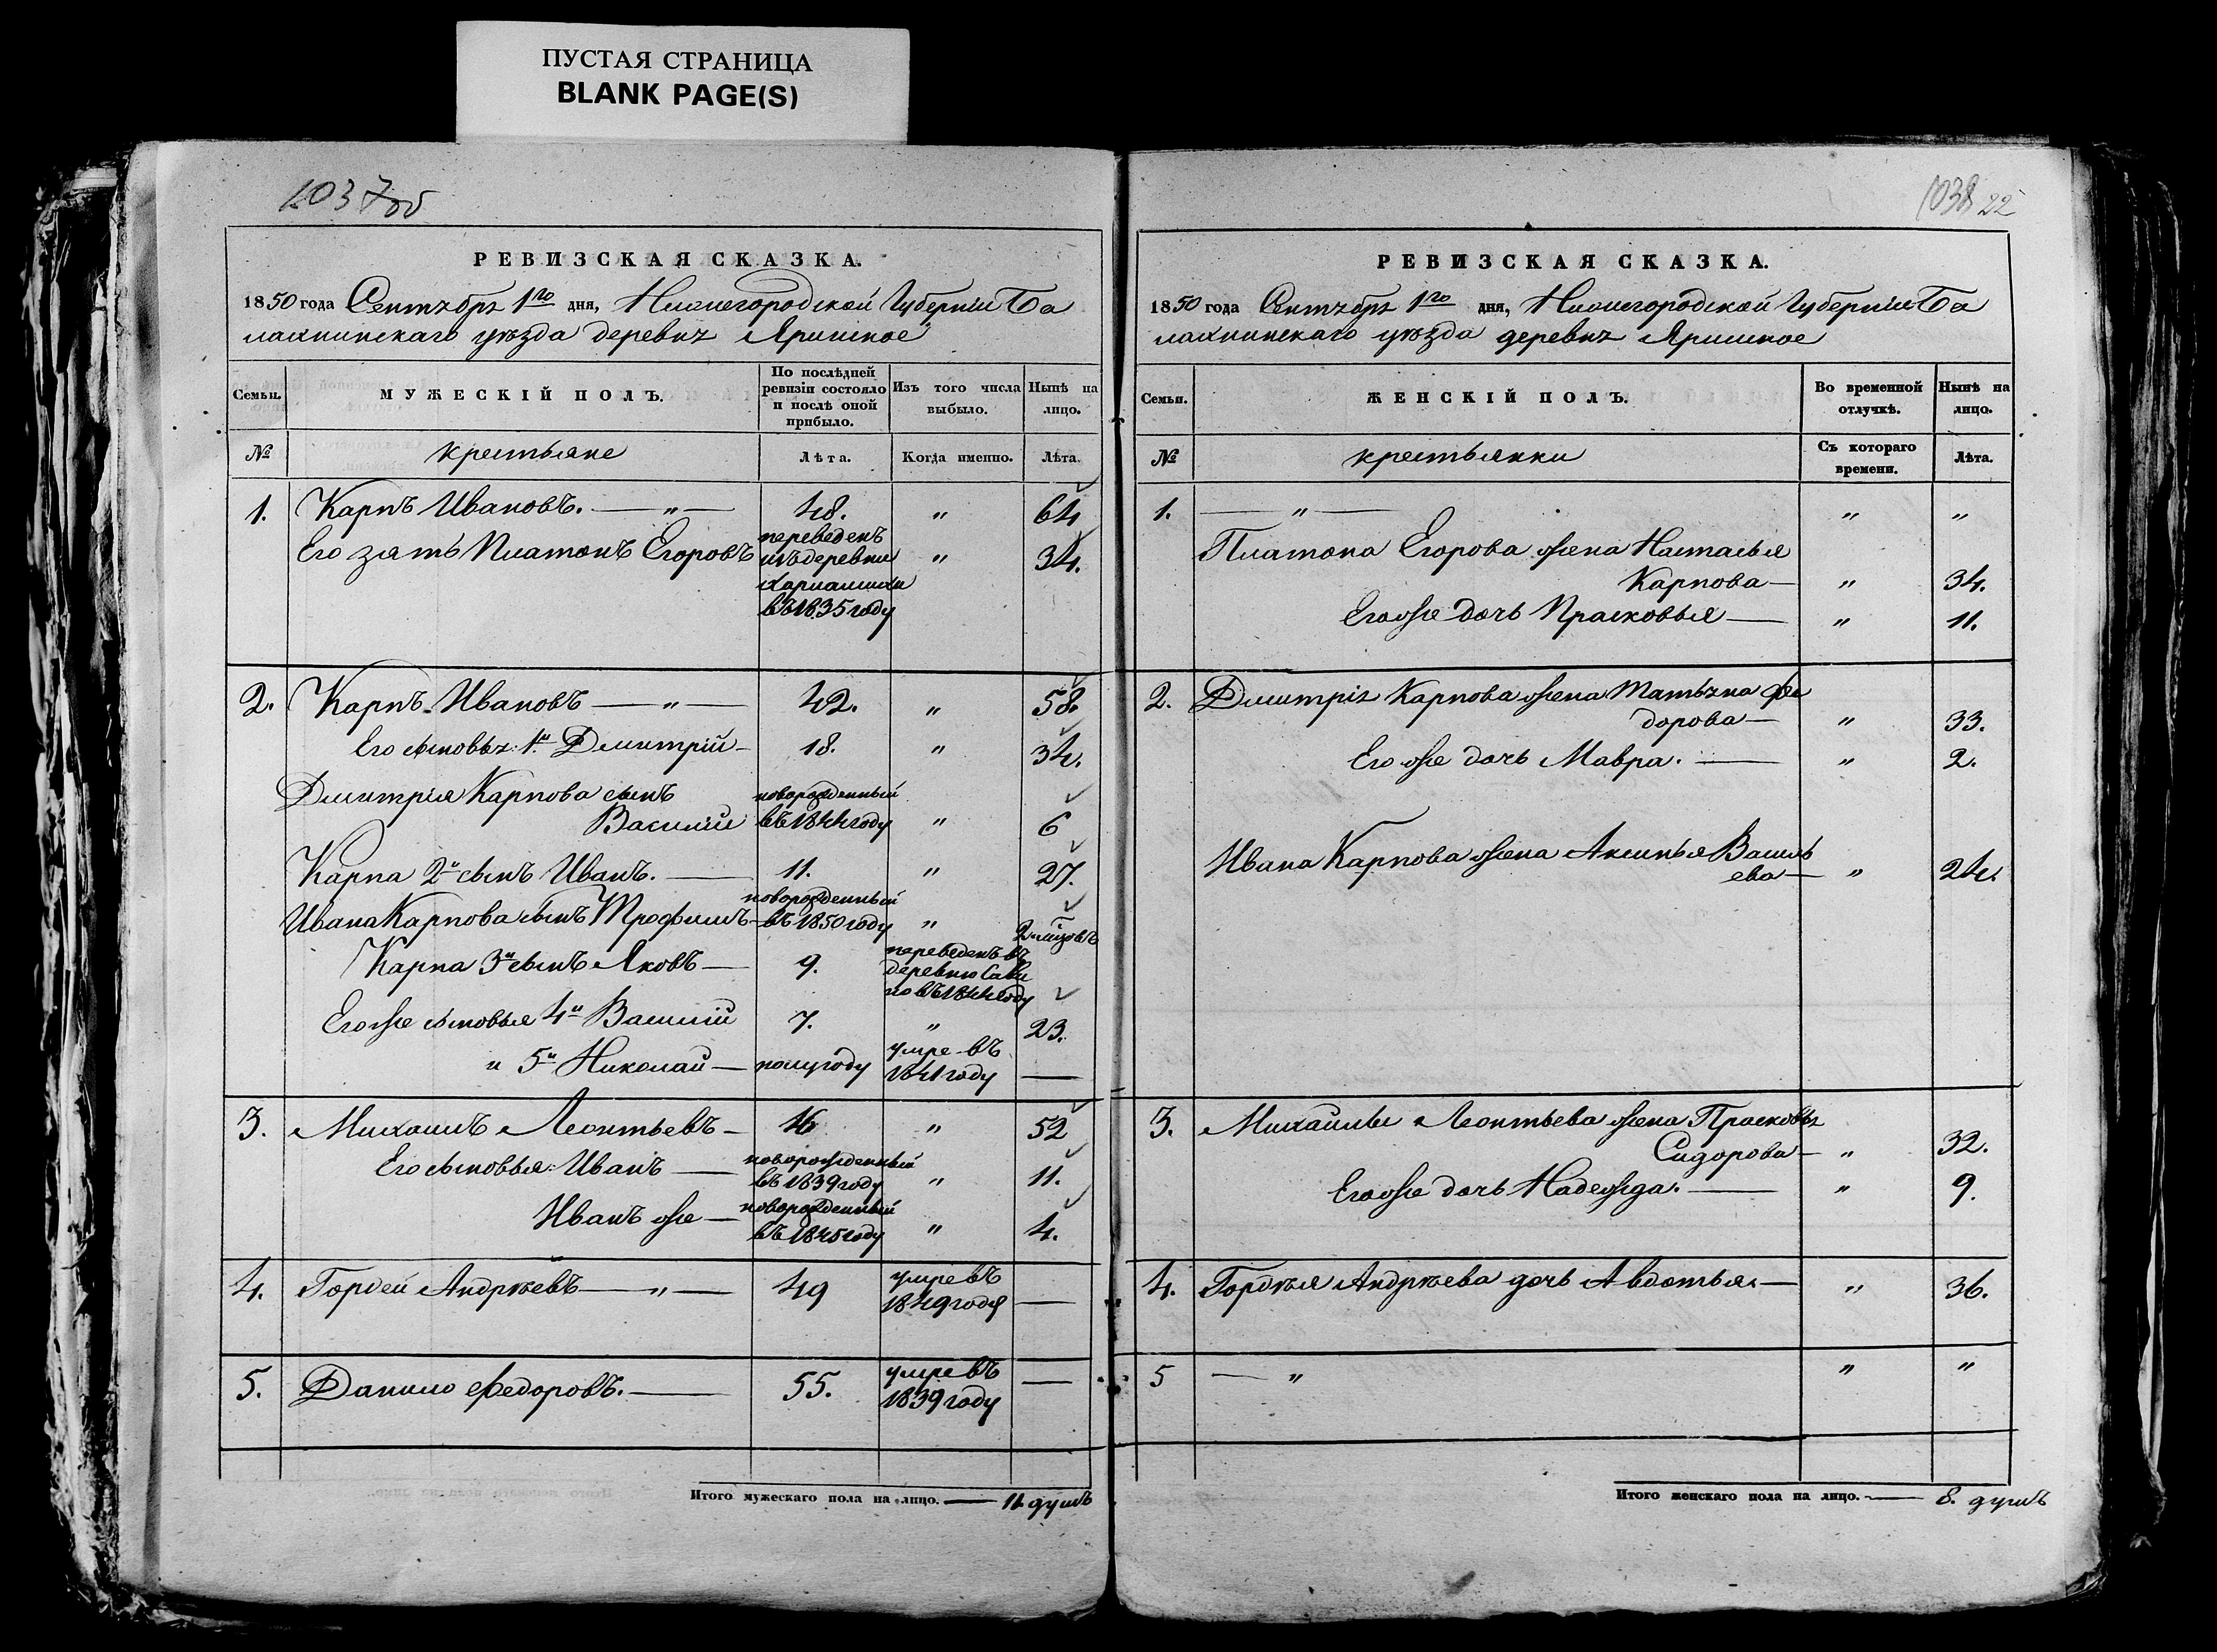 ПУСТАЯ СТРАНИЦА
BLANK PAGE(S)
1037об
РЕВИЗСКАЯ СКАЗКА.
1850 года Сентября 1го дня, Нижегородской Губернии Ба
лахнинскаго уѣзда деревни
Семьи.
МУЖЕСКІЙ ПОЛЪ.
По послѣдней ревизіи состояло и послѣ оной прибыло.
Изъ того числа выбыло.
Нынѣ на лицо.
№
крестьяне
Лѣта.
Когда именно.
Лѣта.
1. Карпъ Ивановъ. — „ — 48. „ 64
Его зять Платонъ Егоровъ переведенъ изъ деревни въ 1835 году „ 34.
2. Карпъ Ивановъ — „ — 42. „ 58.
Его сыновья: 1й Дмитрій — 18. „ 34.
Дмитрія Карпова сынъ
Василій новорожденный въ 1844 году „ 6
Карпа 2й сынъ Иванъ. — 11. „ 27.
Ивана Карпова сынъ Трофимъ — новорожденный въ 1850 году „ 2 мѣсяцовъ
Карпа 3й сынъ Яковъ — 9. переведенъ въ деревню въ 1844 году
Егоже сыновья 4й Василій 7. „ 23.
и 5й Николай — полугоду умре въ 1841 году —
3. Михаилъ Леонтьевъ — „ 52
Его сыновья: Иванъ — новорожденный въ 1839 году „ 11.
Иванъ же — новорожденный въ 1845 году „ 4.
4. Гордей Андрѣевъ — „ — 49 умре въ 1849 годѣ —
5. Данило Федоровъ. — 55. умре въ 1839 году —
Итого мужескаго пола на лицо. — 11 душъ
1038 22
РЕВИЗСКАЯ СКАЗКА.
1850 года Сентября 1го дня, Нижегородской Губерніи Ба
лахнинскаго уѣзда деревни
Семьи.
ЖЕНСКІЙ ПОЛЪ.
Во временной отлучкѣ.
Нынѣ на лицо.
№
крестьянки
Съ котораго времени.
Лѣта.
1. — „ — „ „
Платона Егорова жена Настасья
Карпова — „ 34.
Егоже дочь Прасковья — „ 11.
2. Дмитрія Карпова жена Татьяна Фе
дорова — „ 33.
Его же дочь Мавра. — „ 2.
Ивана Карпова жена Аксинья Василь
ева — „ 24.
3. Михайлы Леонтьева жена Прасковья
Сидорова — „ 32.
Егоже дочь Надежда. — „ 9.
4. Гордѣя Андрѣева дочь Авдотья. — „ 36.
5 — „ „ „
Итого женскаго пола на лицо. — 8. душъ